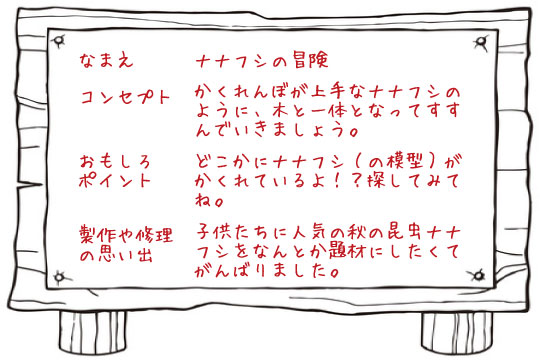 なまえ ナナフシの冒険
コンセプト かくれんぼが上手なナナフシの
ように、木と一体となってすす
んでいきましょう。
おもしろ どこかにナナフシ(の模型)が
ポイント かくれているよ!?探してみて
ね。
製作や修理 子供たちに人気の秋の昆虫ナナ
の思い出 フシをなんとか題材にしたくて
がんばりました。